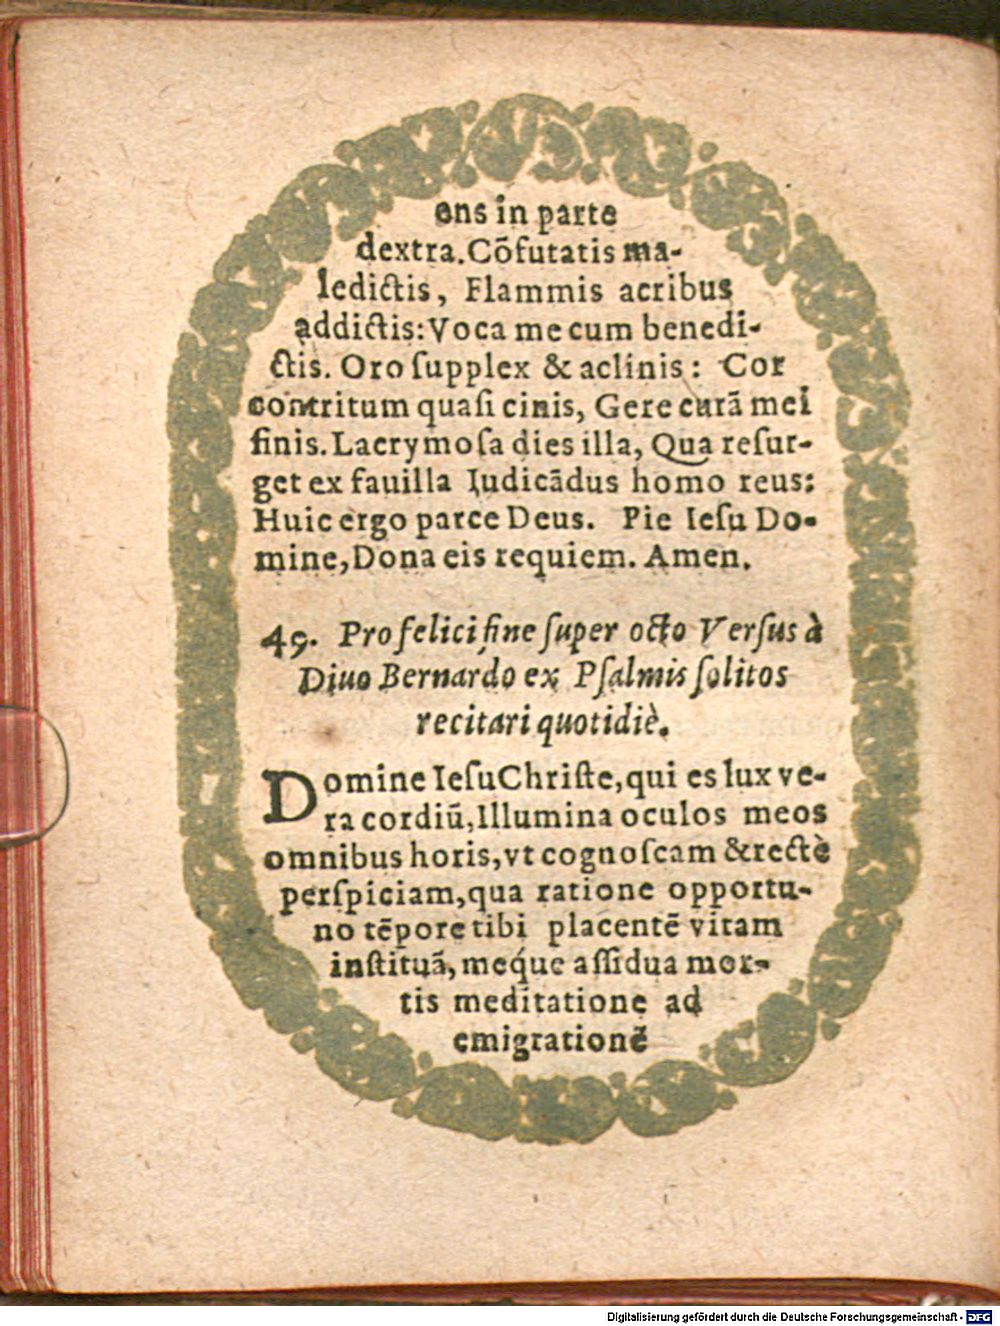 ens in parte
dextra. Cõfutatis ma-
ledictis, Flammis acribus
addictis: Voca me cum benedi-
ctis. Oro ſupplex & aclinis: Cor
contritum quaſi cinis, Gere curã mei
finis. Lacrymoſa dies illa, Qua reſur-
get ex fauilla Iudicãdus homo reus:
Huic ergo parce Deus. Pie Ieſu Do-
mine, Dona eis requiem. Amen.
49. Pro felici fine ſuper octo Verſus à
Diuo Bernardo ex Pſalmis ſolitos
recitari quotidiè.
Domine Ieſu Chriſte, qui es lux ve-
ra cordiũ, Illumina oculos meos
omnibus horis, vt cognoſcam & rectè
perſpiciam, qua ratione opportu-
no tẽpore tibi placentẽ vitam
inſtituã, meq́ue aſſidua mor-
tis meditatione ad
emigrationẽ
Digitalisierung gefördert durch die Deutsche Forschungsgemeinschaft - DFG